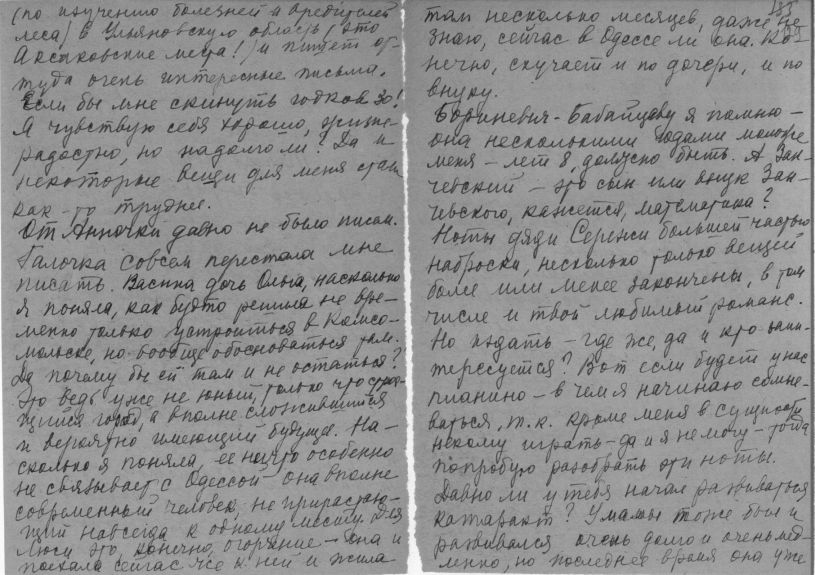 (по изучению болезней и вредителей
леса) в Ульяновскую область (это
Аксаковские места!) и пишет от-
туда очень интересные письма.
Если бы мне скинуть годков 30!
Я чувствую себя хорошо, жизне-
радостно, но надолго ли? Да и
некоторые вещи для меня стали
как-то труднее.
От Анночки давно не было писем.
Галочка совсем перестала мне
писать. Васина дочь Ольга, насколько
я поняла, как будто решила не вре-
менно только устроиться в Комсо-
мольске, но вообще обосноваться там.
Да почему бы ей там и не остаться?
Это ведь уже не юный, только что строя-
щийся город, а вполне сложившийся
и вероятно имеющий будущее. На-
сколько я поняла, ее ничто особенно
не связывает с Одессой она вполне
современный человек, не прирастаю-
щий навсегда к одному месту. Для
Люси это, конечно, огорчение - она и
поехала сейчас же к ней и жила
там несколько месяцев, даже не
знаю, сейчас в Одессе ли она. Ко-
нечно, скучает и по дочери, и по
внуку.
Бориневич-Бабайцеву я помню -
она несколькими годами моложе
меня - лет 8, должно быть. А Зан-
чевский - это сын или внук Зан-
чевского, кажется, математика?
Ноты дяди Сережи большей частью
наброски, несколько только вещей
более или менее закончены, в том
числе и твой любимый романс.
Но издать - где же, да и кто заин-
тересуется? Вот если будет у нас
пианино - в чем я начинаю сомне-
ваться, т.к. кроме меня в сущности
некому играть - да и я не могу - тогда
попробую разобрать эти ноты.
Давно ли у тебя начал развиваться
катаракт? У мамы тоже был и
развивался очень долго и очень мед-
ленно, но последнее время она уже